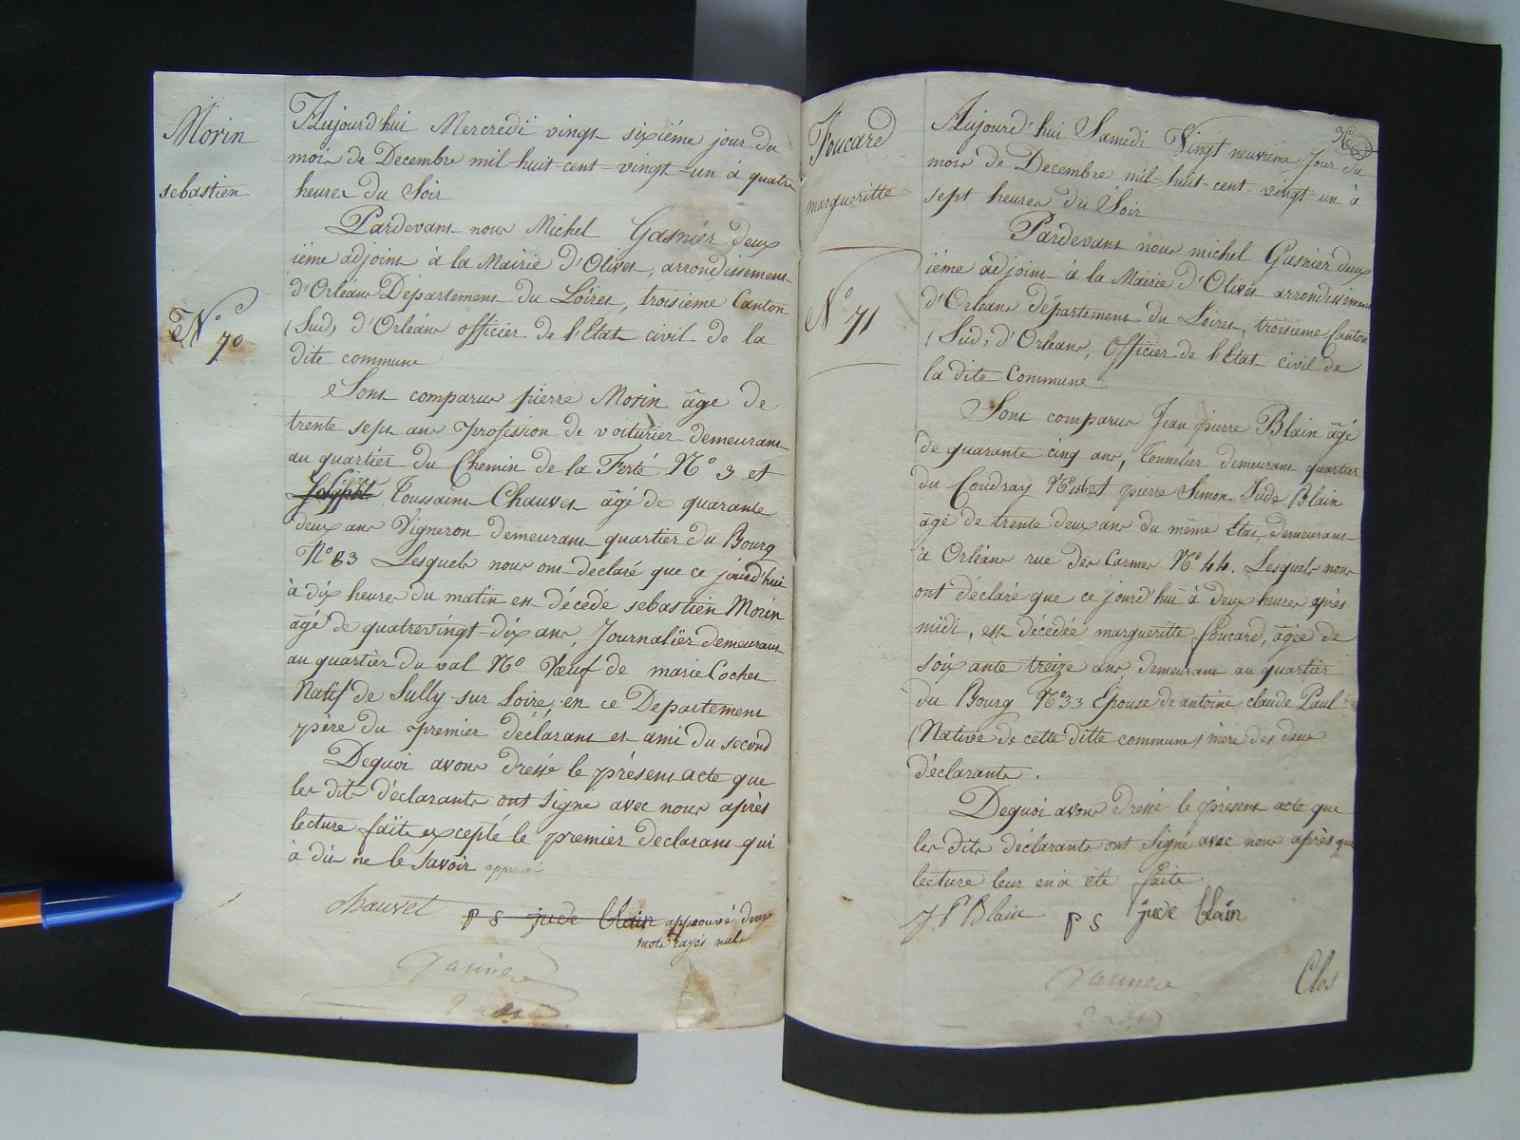 Morin
sebastien
N° 70
Aujourd'hui Mercredi vingt sixiéme jour du
mois de Decembre mil-huit-cent-vingt-un à quatre
heures du Soir
Pardevant nous Michel Gasnier deux
ième adjoint à la Mairie d'Olivet, arrondissement
d'Orléans Departement du Loiret, troisieme Canton
(Sud) d'Orléans officier de l'Etat civil de la
dite commune
Sont comparus pierre Morin âge de
trente sept ans profession de voiturier demeurant
au quartier du Chemin de la Ferté N° 3 et
Joseph Toussaint Chauvet âgé de quarante
deux ans Vigneron demeurant quartier du Bourg
N° 63 Lesquels nous ont declaré que ce jourd'hui
à dix heures du matin est décédé sebastien Morin
âgé de quatrevingt-dix ans Journalier demeurant
au quartier du val N° Vœuf de marie Cochet
Natif de Sully-sur Loire, en ce Departement
père du premier déclarant et ami du second
Dequoi avons dressé le présent acte que
les dits déclarants ont signé avec nous après
lecture faite excepté le premier declarant qui
à dit ne le savoir
Chauvet p s jude blain approuvé deux
mots rayés nuls
Foucard
margueritte
N° 71
Aujourd'hui Samedi Vingt neuvieme Jour du
mois de Decembre mil-huit-cent-vingt-un à
sept heures du Soir
Pardevant nous michel Gasnier deux
ième adjoint à la Mairie d'Olivet arrondissement
d'Orléans département du Loiret, troisieme Canton
(Sud) d'Orléans, Officier de l'Etat civil de
la dite Commune
Sont comparus Jean pierre Blain âgé
de quarante cinq ans, Tonnelier demeurant quartier
du Coudray et pierre Simon Jude Blain
âgé de trente deux ans du même Etat, demeurant
à Orléans rue des Carmes N° 44. Lesquels nous
ont déclaré que ce jourd'hui à deux heures après
midi, est décédée margueritte foucard, âgée de
soixante treize ans, demeurant au quartier
du Bourg N° 33 Epouse de antoine claude Paul
(Native de cette ditte commune) mère des deux
déclarants.
Dequoi avons dressé le présent acte que
les dits déclarants ont signé avec nous après que
lecture leur en à été faite
J. P Blain p s jude blain
Clos